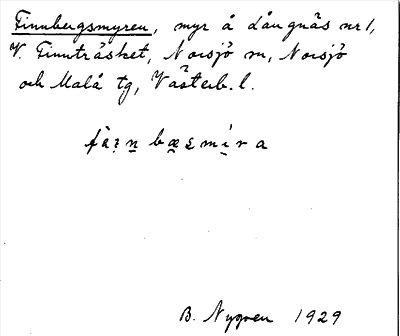 Finnbergsmyren, myr å Långnäs nr 1,
V. Finnträsket, Norsjö sn, Norsjö
och Malå tg, Västerb. l.
B. Nygren 1929